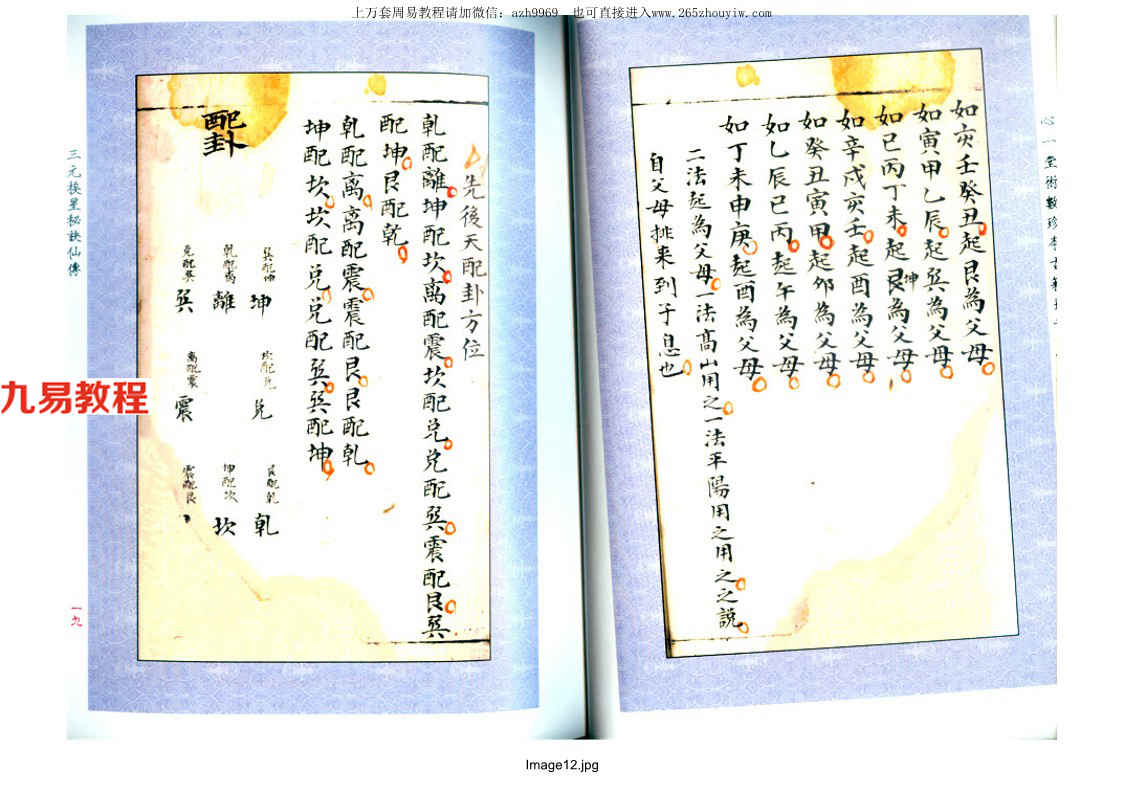 上万套周易教程请加微信：azh9969　也可直接进入www.265zhouyiw.com
如亥壬癸丑起艮為父母
如寅甲乙辰起巽為父母
如巳丙丁未起艮坤為父母
如辛戌亥壬起酉為父母
如癸丑寅甲起卯為父母
如乙辰巳丙起午為父母
如丁未申庚起酉為父母
二法起為父母一法髙山用之一法平陽用之用之之說
自父母排来到子息也
先後天配卦方位
乾配離坤配坎离配震坎配兑兑配巽震配艮巽
配坤艮配乾
乾配离离配震震配艮艮配乾
坤配坎坎配兑兑配巽巽配坤
配卦
巽配坤
乾配离
兑配巽
坤
離
巽
坎配兑
离配震
兑
震
艮配乾
坤配坎
震配艮
乾
坎
三元挨星秘訣仙傳
一九
九易教程
Image12.jpg